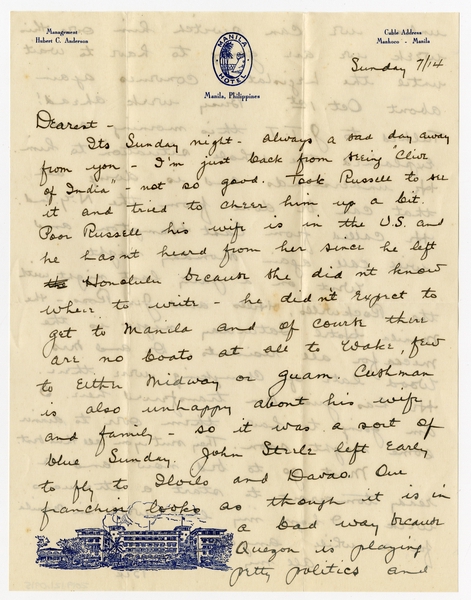 Management
Hobert C. Anderson
MANILA
HOTEL
Manila, Philippines
Cable Address
Manhoco - Manila
Sunday 7/14
Dearest -
Its Sunday night - always a sad day away
from you - I'm just back from seeing "Clive
of India" - not so good. Took Russell to see
it and tried to cheer him up a bit.
Poor Russell his wife is in the U.S. and
he hasn't heard from her since he left
Honolulu because she didn't know
where to write - he didn't expect to
get to Manila and of course there
are no boats at all to Wake, few
to either Midway or Guam. Cushman
is also unhappy about his wife
and family - so it was a sort of
blue Sunday. John Steele left early
to fly to Iloilo and Davao. Our
franchise looks as though it is in
a bad way because
Quezon is playing
petty politics and